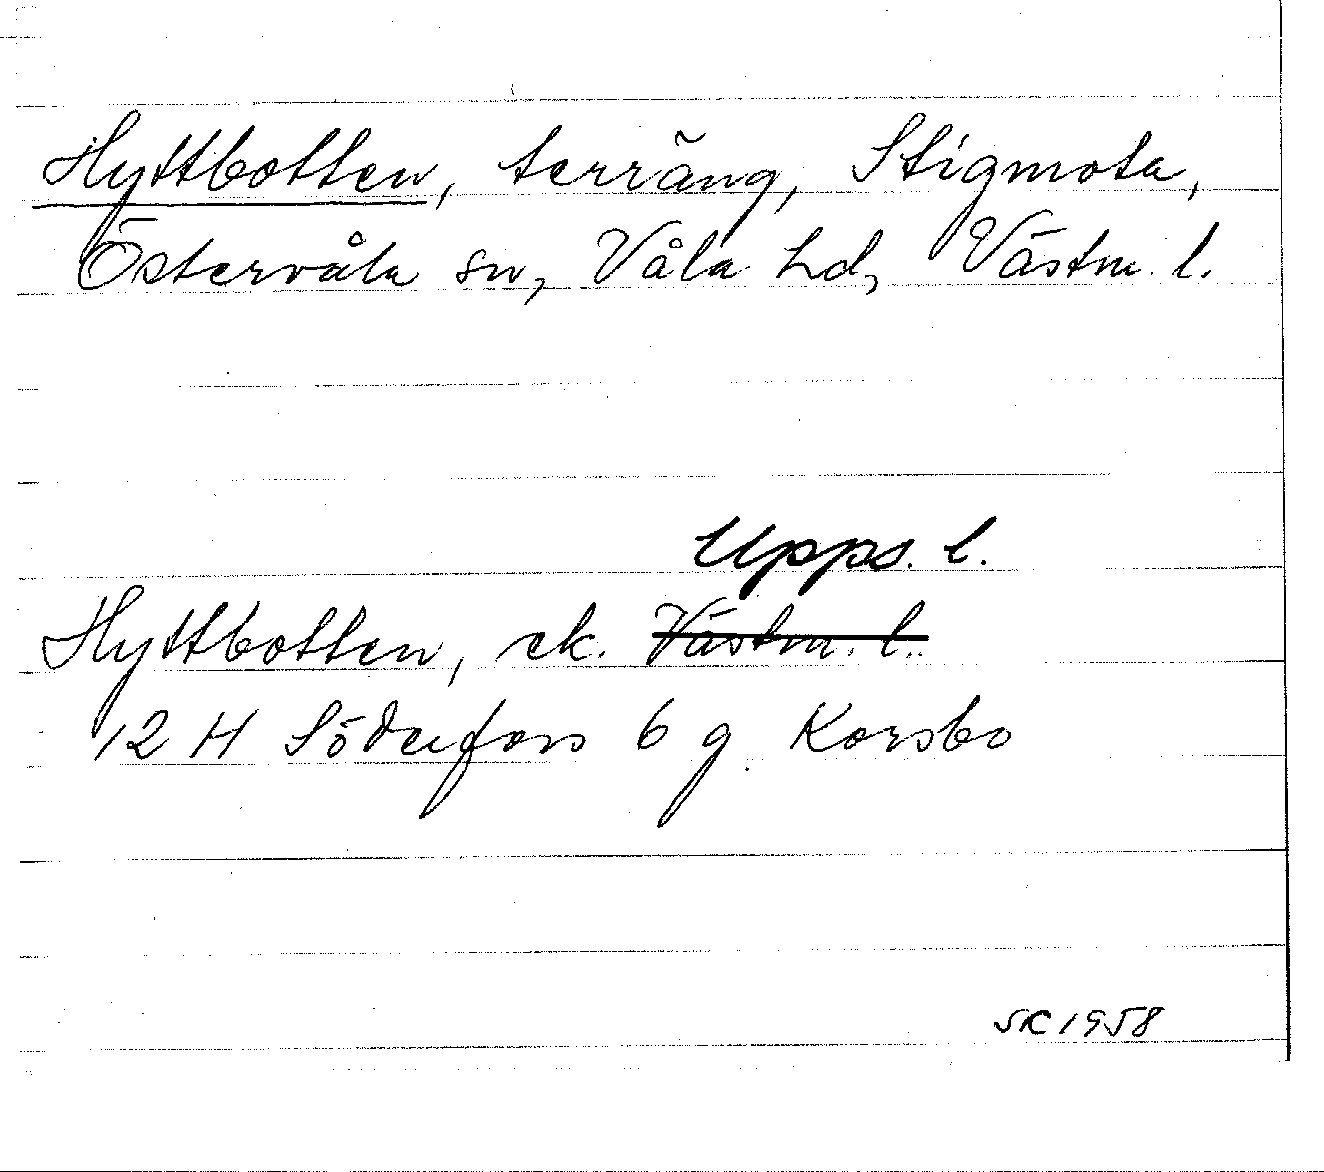 Hyttbotten, terräng, Stigmota,
Östervåla sn, Våla hd, Västm. l.
Upps. l.
Hyttbotten, ek. Västm. l.
12 H Söderfors 6 g Korsbo
SK 1958